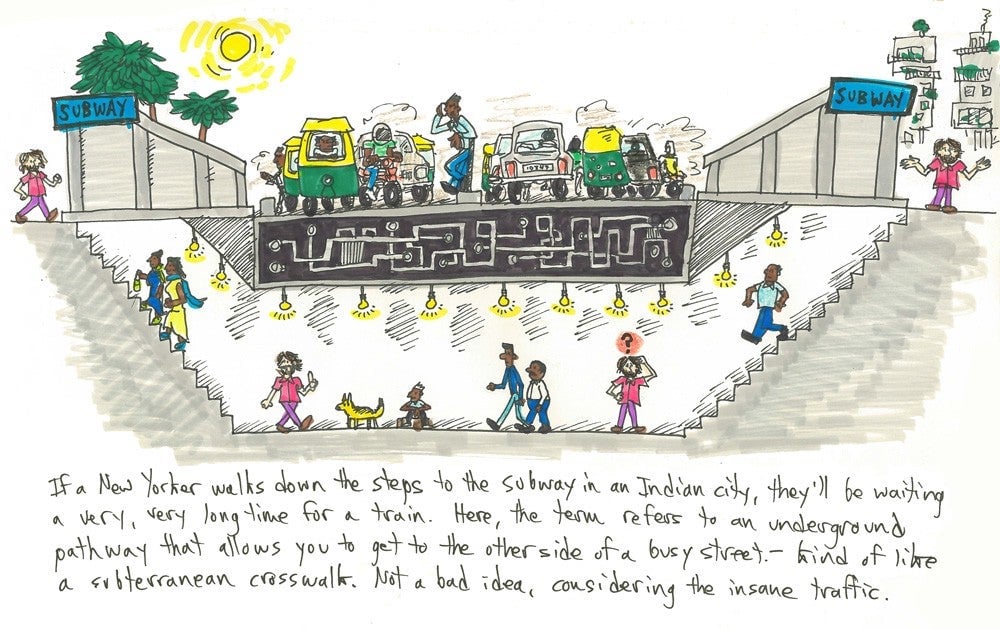 SUBWAY
SUBWAY
?
If a New Yorker walks down the steps to the subway in an Indian city, they'll be waiting
a very, very long time for a train. Here, the term refers to an underground
pathway that allows you to get to the other side of a busy street. – kind of like
a subterranean crosswalk. Not a bad idea, considering the insane traffic.